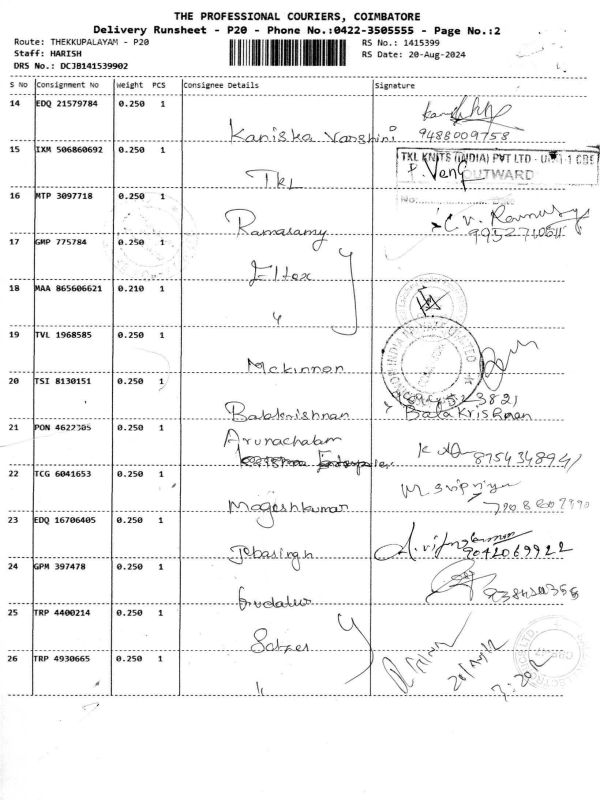 THE PROFESSIONAL COURIERS, COIMBATORE
Delivery Runsheet - P20 - Phone No.:0422-3505555 - Page No.:2
Route: THEKKUPALAYAM - P20
RS No.: 1415399
Staff: HARISH
RS Date: 20-Aug-2024
DRS No.: DCJB141539902
S No Consignment No Weight PCS Consignee Details Signature
14 EDQ 21579784 0.250 1
Kaniska Varshini 9488009758
15 IXM 506860692 0.250 1
TKL KNITS (INDIA) PVT LTD - UNIT-1 CBE
OUTWARD
TKL
No.
16 MTP 3097718 0.250 1
Ramasamy
17 GMP 775784 0.250 1
Eltex
18 MAA 865606621 0.210 1
"
19 TVL 1968585 0.250 1
Mckinnon
20 TSI 8130151 0.250 1
Balakrishnan Balakrishnan
21 PON 4622305 0.250 1
Arunachalam
22 TCG 6041653 0.250 1
Mageshkumar
23 EDQ 16706405 0.250 1
Jebasingh 9042069922
24 GPM 397478 0.250 1
25 TRP 4400214 0.250 1
26 TRP 4930665 0.250 1
"